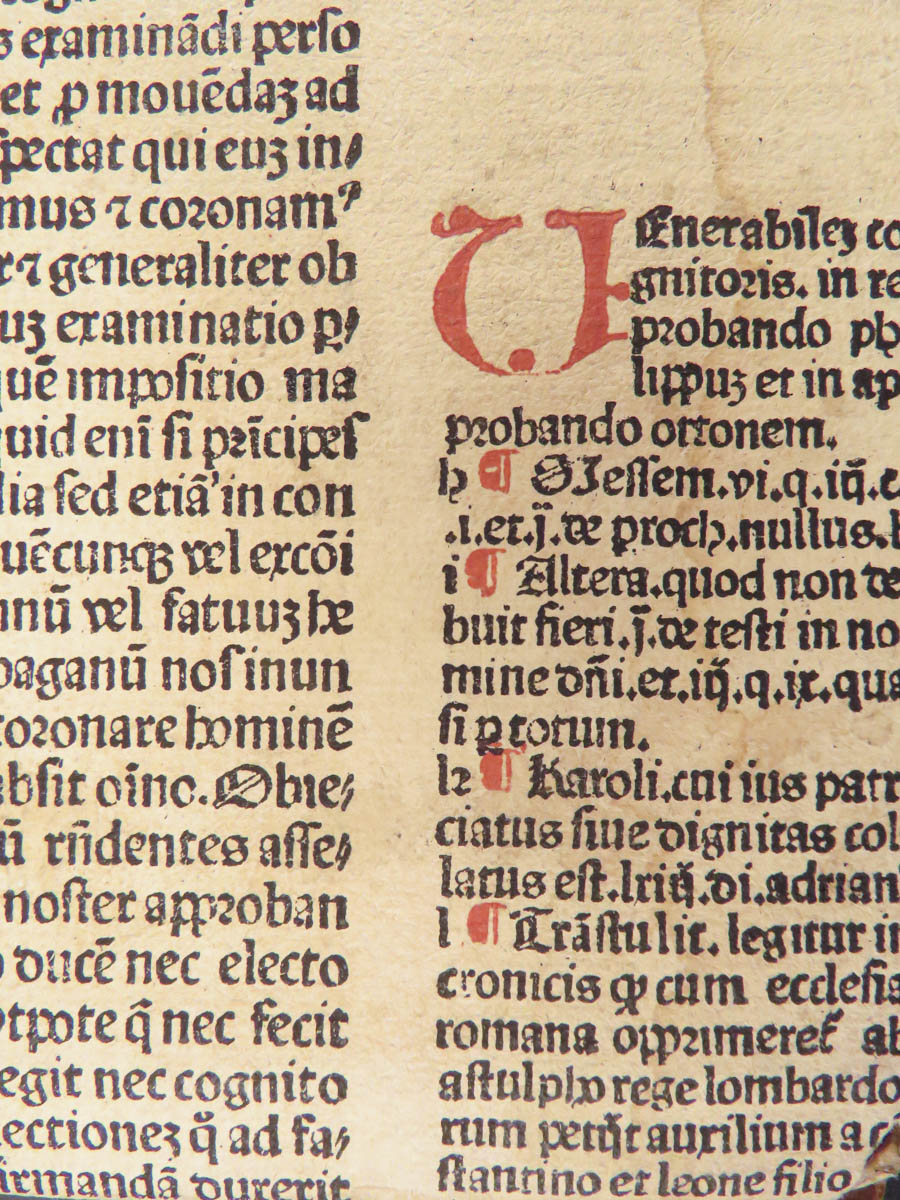 examinādi perſo
et ꝓ mouēdaꝫ ad
ſpectat qui euꝫ in⸗
mus ⁊ coronamꝰ
r⁊ generaliter ob
uꝫ examinatio ꝑ⸗
quē impoſitio ma
quid enī ſi prīcipeſ
lia ſed etiā in con
uēcunqꝫ vel excōi
nnū vel fatuuꝫ he
paganū noſ inun
coronare hominē
abſit oīno. Obie⸗
ū rn̄dentes aſſe⸗
noſter approban
ducē nec electo
vtpote q̄ nec fecit
egit nec cognito
lectioneꝫ ꝙ ad fa⸗
firmandā duxerit
VEnerabileꝫ co
gnitoris. in re
probando phi
lippuꝫ et in ap
probando ottonem.
h ¶ Gieſſem.vi.q.iij.c
.i.et.ij.de proch.nullus.
i ¶ Altera.quod non de
buit fieri.ij.de teſti in no
mine dn̄i.et.iij.q.ix.qua
ſi ꝑ totum.
k ¶ Karoli.cui ius patri
ciatus ſiue dignitas col
latus eſt.lxiij.di.adrianꝰ
l ¶ Trāſtulit. legitur in
cronicis ꝙ cum eccleſia
romana opprimeret᷑ ab
aſtulpho rege lombardo
rum petijt auxilium a cō
ſtantino et leone filio